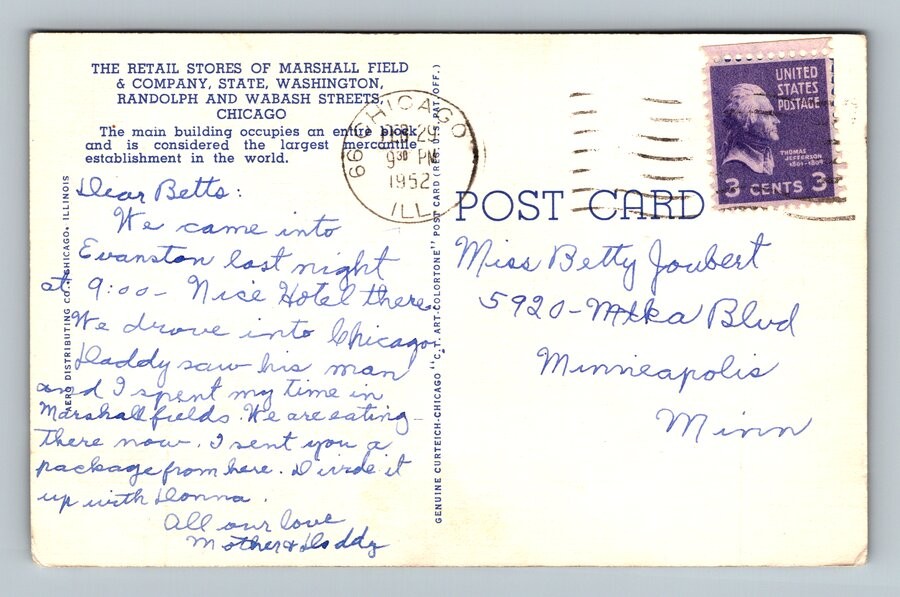 THE RETAIL STORES OF MARSHALL FIELD
& COMPANY, STATE, WASHINGTON,
RANDOLPH AND WABASH STREETS,
CHICAGO
The main building occupies an entire block
and is considered the largest mercantile
establishment in the world.
Dear Betts:
We came into
Evanston last night
at 9:00 - Nice Hotel there.
We drove into Chicago.
Daddy saw his man
and I spent my time in
Marshallfields. We are eating
there now. I sent you a
package from here. Divide it
up with Donna.
All our love
Mother & Daddy
DISTRIBUTING CO., CHICAGO, ILLINOIS
GENUINE CURTEICH-CHICAGO "C.T. ART-COLORTONE" POST CARD (REG. U.S. PAT. OFF.)
66 CHICAGO
FEB 29
9 30 PM
1952
ILL
UNITED
STATES
POSTAGE
THOMAS
JEFFERSON
1801-1809
3 CENTS 3
POST CARD
Miss Betty Joubert
5920 - Mtka Blvd
Minneapolis
Minn